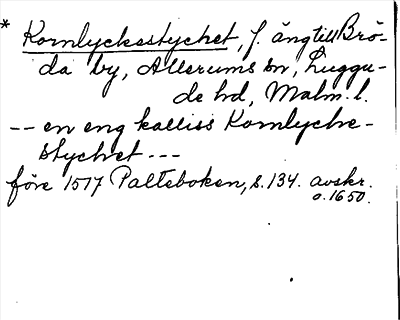 * Kornlyckestychet, f. äng till Brö-
da by, Allerums sn, Luggu-
de hd, Malm. l.
-- en eng kalliss Kornlycke-
stychet ---
före 1517 Palteboken, s. 134. avskr.
o. 1650.